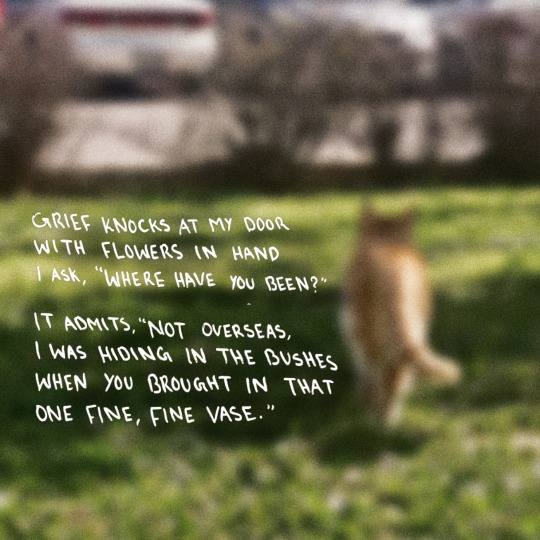 GRIEF KNOCKS AT MY DOOR
WITH FLOWERS IN HAND
I ASK, "WHERE HAVE YOU BEEN?"
IT ADMITS, "NOT OVERSEAS,
I WAS HIDING IN THE BUSHES
WHEN YOU BROUGHT IN THAT
ONE FINE, FINE VASE."